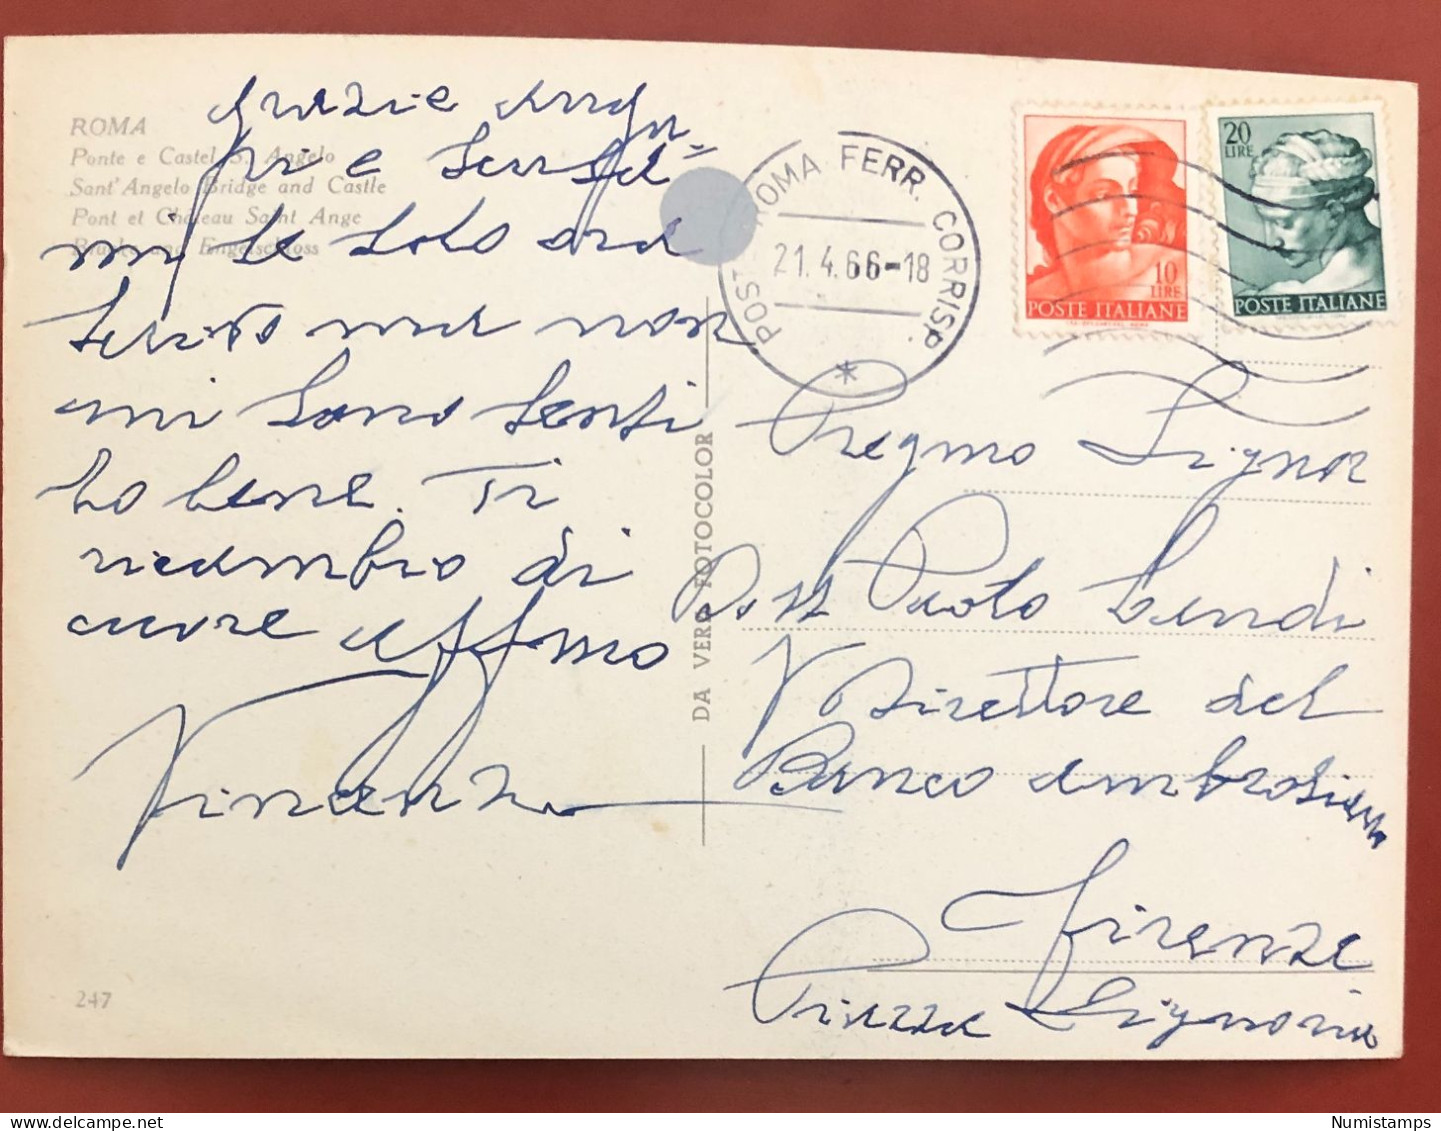 ROMA
Ponte e Castel S. Angelo
Sant'Angelo Bridge and Castle
Pont et Château Saint Ange
Brucke und Engelschloss
grazie augu
ri e
mi te solo ora
scrivo non
mi sono senti
to bene. Ti
ricambio di
cuore affmo
Vincenzo
247
DA VERO FOTOCOLOR
POSTE ROMA FERR. CORRISP.
21.4.66-18
10
LIRE
POSTE ITALIANE
20
LIRE
POSTE ITALIANE
Pregmo Signor
Dott Paolo Landi
V Direttore del
Banco Ambrosiano
Firenze
Piazza Signoria
Numistamps